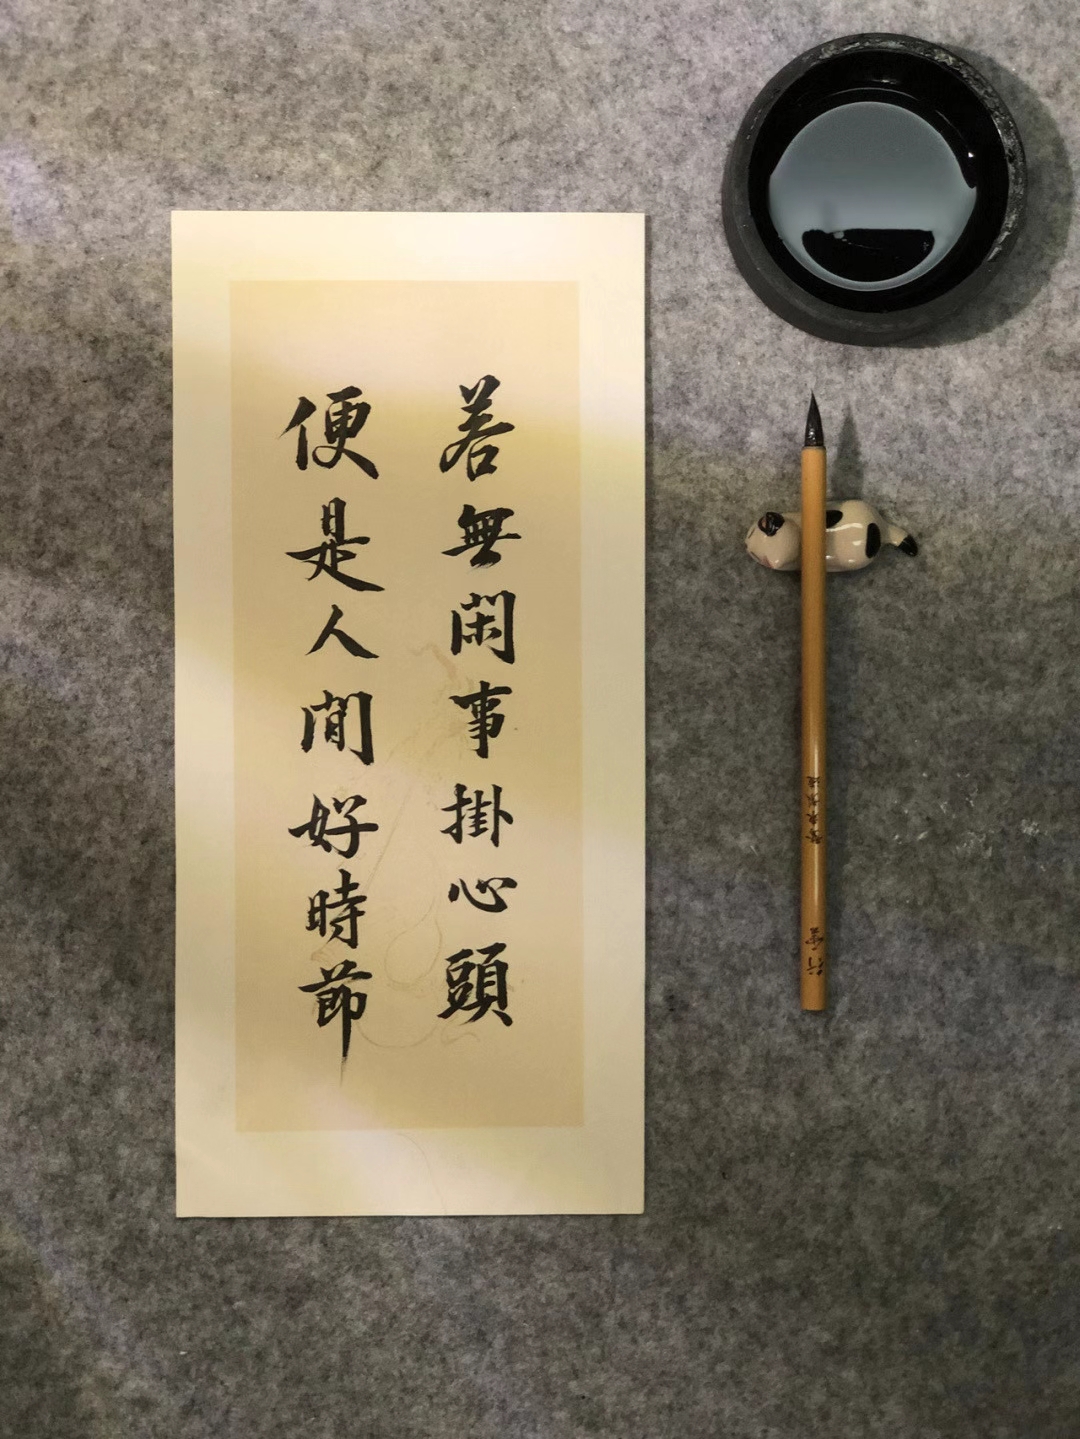 若無閑事掛心頭
便是人間好時節